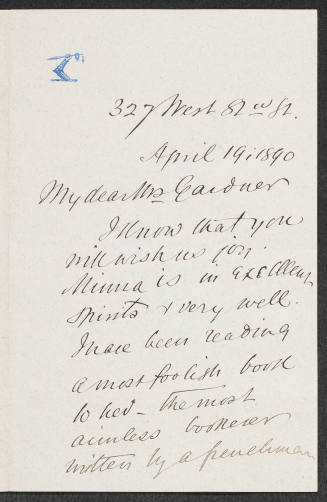 327 West 82nd St.
April 19, 1890
My dear Mrs Gardner
I know that you
will wish us joy.
Minna is in excellent
spirits & very well.
I have been reading
a most foolish book
to her - the most
aimless book ever
written by a frenchman